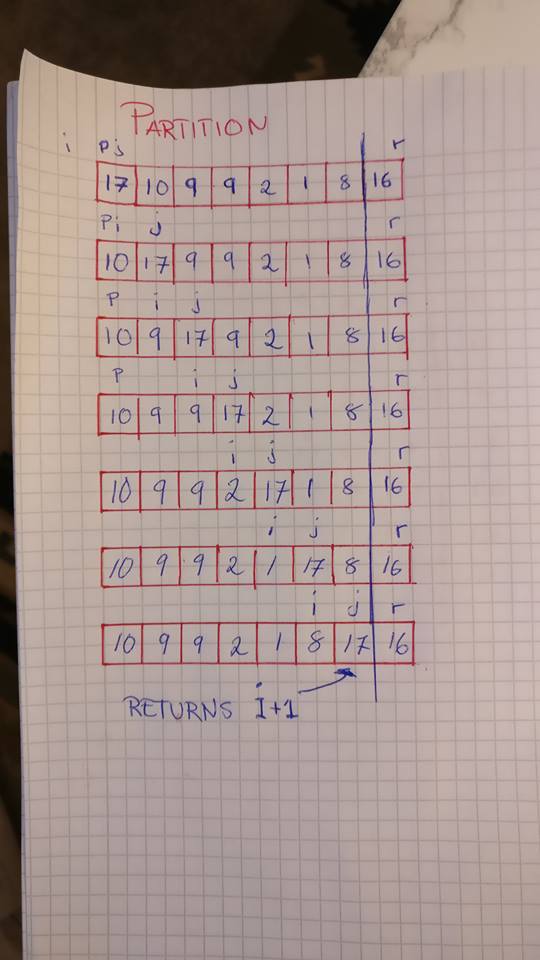 PARTITION
i P j r
17 10 9 9 2 1 8 16
P i j r
10 17 9 9 2 1 8 16
P i j r
10 9 17 9 2 1 8 16
P i j r
10 9 9 17 2 1 8 16
i j r
10 9 9 2 17 1 8 16
i j r
10 9 9 2 1 17 8 16
i j r
10 9 9 2 1 8 17 16
RETURNS I+1